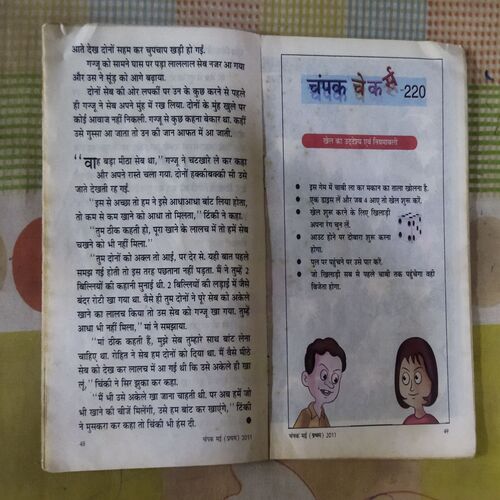 आते देख दोनों सहम कर चुपचाप खड़ी हो गईं.
गज्जू को सामने घास पर पड़ा लाललाल सेब नजर आ गया
और उस ने सूंड़ को आगे बढ़ाया.
दोनों सेब की ओर लपकीं पर उन के कुछ करने से पहले
ही गज्जू ने सेब अपने मुंह में रख लिया. दोनों के मुंह खुले पर
कोई आवाज नहीं निकली. गज्जू से कुछ कहना बेकार था. कहीं
उसे गुस्सा आ जाता तो उन की जान आफत में आ जाती.
“वाह बड़ा मीठा सेब था,” गज्जू ने चटखारे ले कर कहा
और अपने रास्ते चला गया. दोनों हक्कीबक्की सी उसे
जाते देखती रह गईं.
“इस से अच्छा तो हम ने इसे आधाआधा बांट लिया होता,
तो कम से कम खाने को आधा तो मिलता,” टिंकी ने कहा.
“तुम ठीक कहती हो, पूरा खाने के लालच में तो हमें सेब
चखने को भी नहीं मिला.”
“तुम दोनों को अक्ल तो आई, पर देर से. यही बात पहले
समझ गई होती तो इस तरह पछताना नहीं पड़ता. मैं ने तुम्हें 2
बिल्लियों की कहानी सुनाई थी. 2 बिल्लियों की लड़ाई में जैसे
बंदर रोटी खा गया था. वैसे ही तुम दोनों ने पूरे सेब को अकेले
खाने का लालच किया तो उस सेब को गज्जू खा गया. तुम्हें
आधा भी नहीं मिला,” मां ने समझाया.
“मां ठीक कहती हैं, मुझे सेब तुम्हारे साथ बांट लेना
चाहिए था. रोहित ने सेब हम दोनों को दिया था. मैं वैसे मीठे
सेब को देख कर लालच में आ गई थी कि उसे अकेले ही खा
लूं,” चिंकी ने सिर झुका कर कहा.
“मैं भी उसे अकेले खा जाना चाहती थी. पर अब हमें जो
भी खाने की चीजें मिलेंगी, उसे हम बांट कर खाएंगे,” टिंकी
ने मुसकरा कर कहा तो चिंकी भी हंस दी.
48
चंपक मई (प्रथम) 2011
चंपक चेकर्स -220
खेल का उद्देश्य एवं नियमावली
इस गेम में चाबी ला कर मकान का ताला खोलना है.
एक डाइस लें और जब 4 आए तो खेल शुरू करें.
खेल शुरू करने के लिए खिलाड़ी
अपना रंग चुन लें.
आउट होने पर दोबारा शुरू करना
होगा.
पुल पर पहुंचने पर उसे पार करें.
जो खिलाड़ी सब से पहले चाबी तक पहुंचेगा वही
विजेता होगा.
चंपक मई (प्रथम) 2011
49